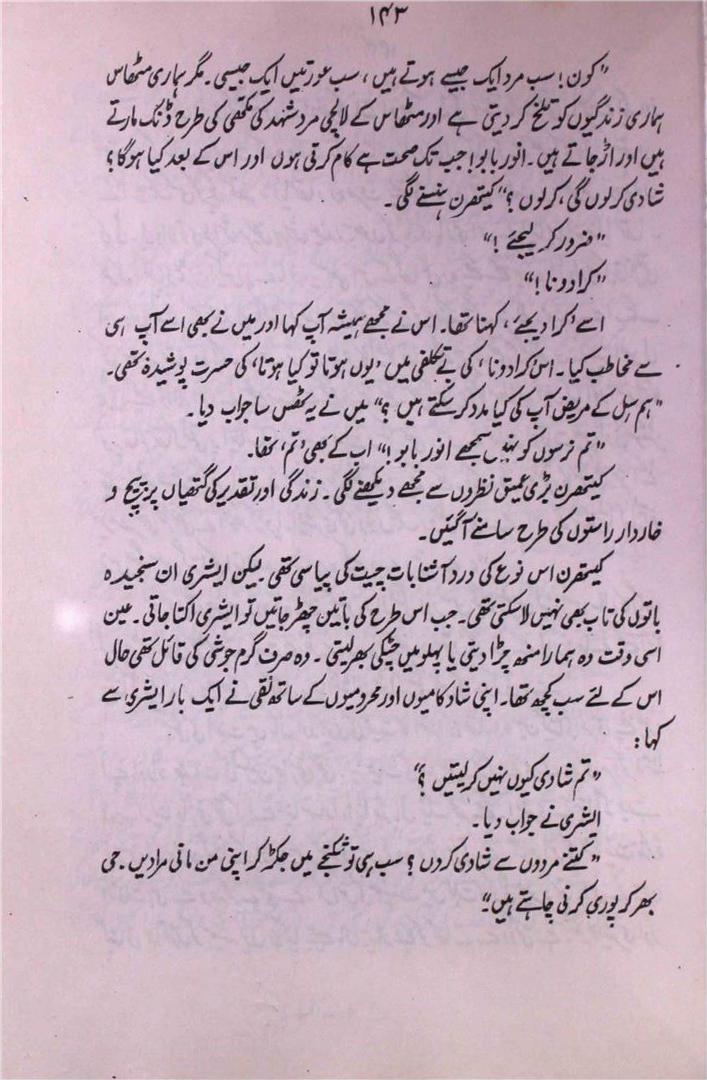 ۱۴۳
"کون! سب مرد ایک جیسے ہوتے ہیں، سب عورتیں ایک جیسی۔ مگر ہماری مٹھاس
ہماری زندگیوں کو تلخ کر دیتی ہے اور مٹھاس کے لالچی مرد شہد کی مکھی کی طرح ڈنک مارتے
ہیں اور اڑ جاتے ہیں۔ انور بابو! جب تک صحت ہے کام کرتی ہوں اور اس کے بعد کیا ہوگا؟
شادی کر لوں گی، کر لوں؟" کیتھرن ہنسنے لگی۔
"ضرور کر لیجئے!"
"کرا دو نا!"
اسے 'کرا دیجئے'، کہنا تھا۔ اس نے مجھے ہمیشہ آپ کہا اور میں نے بھی اسے آپ ہی
سے مخاطب کیا۔ اس 'کرا دو نا' کی بے تکلفی میں 'یوں ہوتا تو کیا ہوتا' کی حسرت پوشیدہ تھی۔
"ہم سِل کے مریض آپ کی کیا مدد کر سکتے ہیں؟" میں نے یہ ٹھس سا جواب دیا۔
"تم نرسوں کو نہیں سمجھے انور بابو!" اب کے بھی 'تم' تھا۔
کیتھرن بڑی عمیق نظروں سے مجھے دیکھنے لگی۔ زندگی اور تقدیر کی گتھیاں پر پیچ و
خاردار راستوں کی طرح سامنے آ گئیں۔
کیتھرن اس نوع کی درد آشنا بات چیت کی پیاسی تھی لیکن ایشری ان سنجیدہ
باتوں کی تاب بھی نہیں لا سکتی تھی۔ جب اس طرح کی باتیں چھڑ جاتیں تو ایشری اکتا جاتی۔ عین
اسی وقت وہ ہمارا منھ چڑا دیتی یا پہلو میں چٹکی بھر لیتی۔ وہ صرف گرم جوشی کی قائل تھی حال
اس کے لئے سب کچھ تھا۔ اپنی شاد کامیوں اور محرومیوں کے ساتھ نقی نے ایک بار ایشری سے
کہا:
"تم شادی کیوں نہیں کر لیتیں؟"
ایشری نے جواب دیا۔
"کتنے مردوں سے شادی کروں؟ سب ہی تو شکنجے میں جکڑ کر اپنی من مانی مرادیں۔ جی
بھر کر پوری کرنی چاہتے ہیں۔"